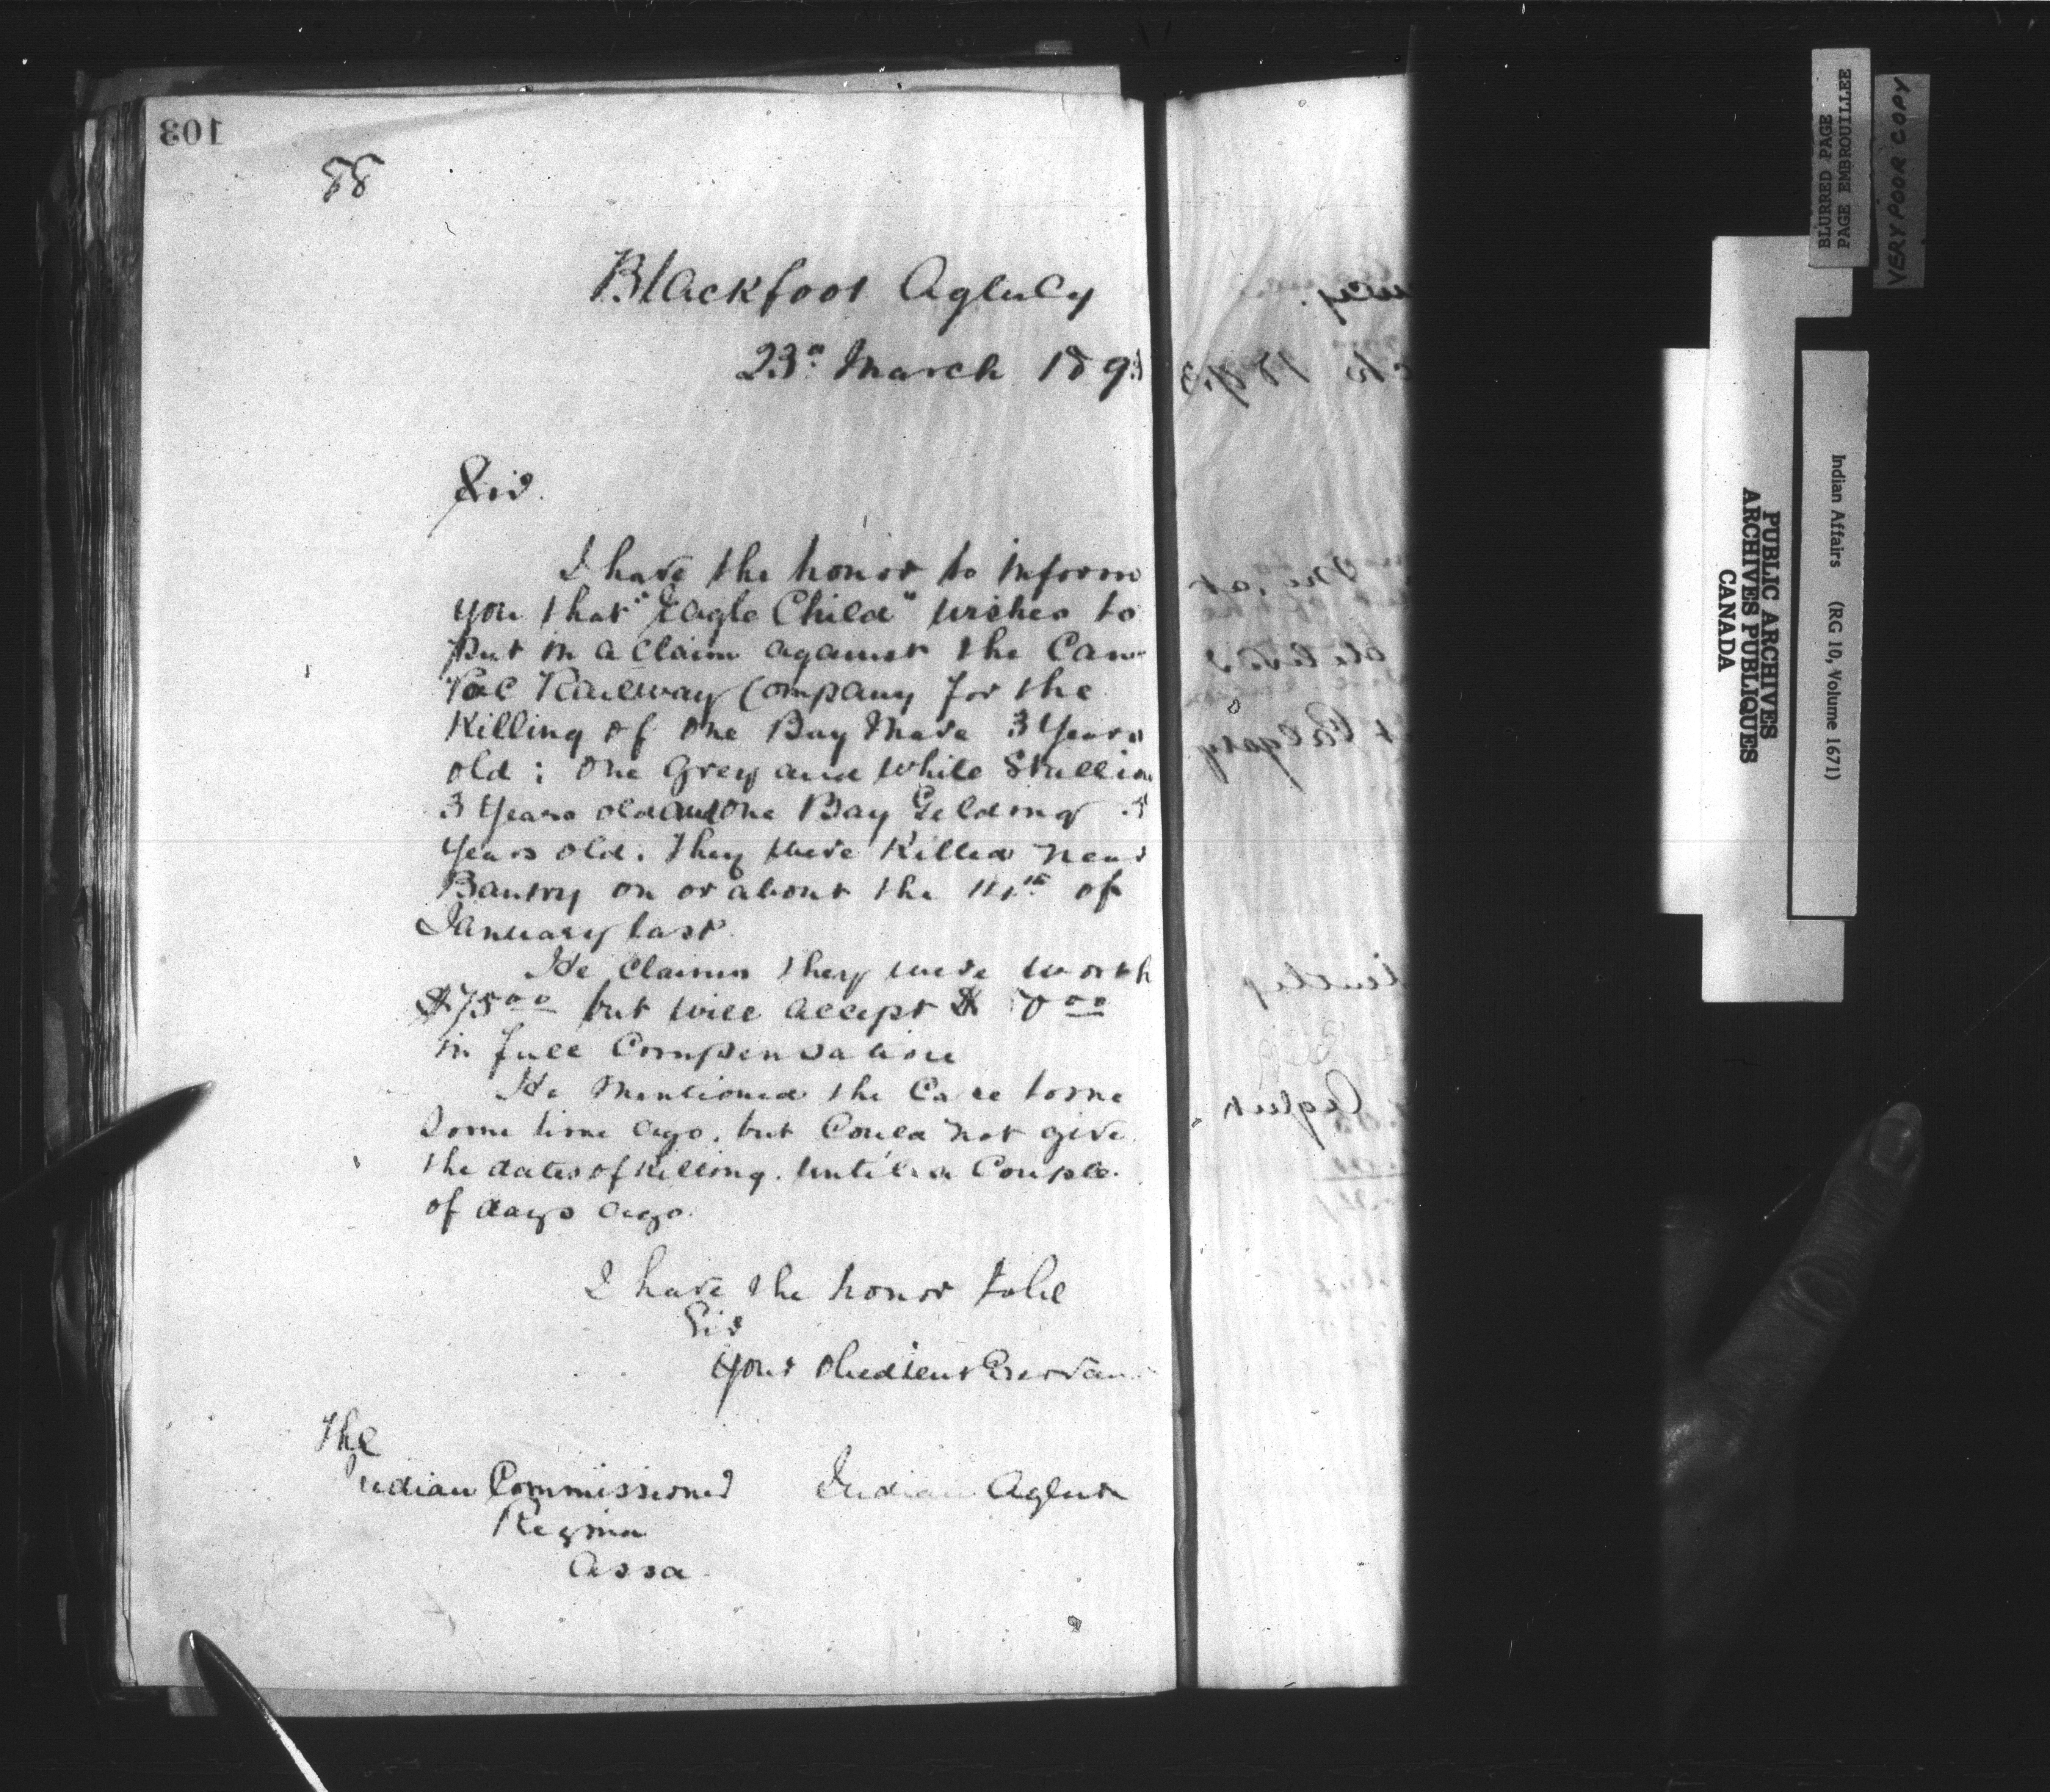 103
88
Blackfoot Agency
23d March 1893
Sir.
I have the honor to inform
you that "Eagle Child" wishes to
put in a claim against the Can
Pac Railway Company for the
Killing of one Bay Mare 3 Years
old; One Grey and White Stallion
3 Years old and One Bay Gelding
Years old. They were Killed near
Bantry on or about the of
January last.
He claims they were worth
$75 00 but will accept $
in full Compensation
He Mentioned the Case to me
Some time ago, but Could not give
the dates of Killing. until a Couple
of days ago.
I have the honor to be
Sir
Your Obedient Servan
The
Indian Commissioner
Indian Agent
Regina
Assa.
BLURRED PAGE
PAGE EMBROUILLEE
VERY POOR COPY
PUBLIC ARCHIVES
ARCHIVES PUBLIQUES
CANADA
Indian Affairs (RG 10, Volume 1671)